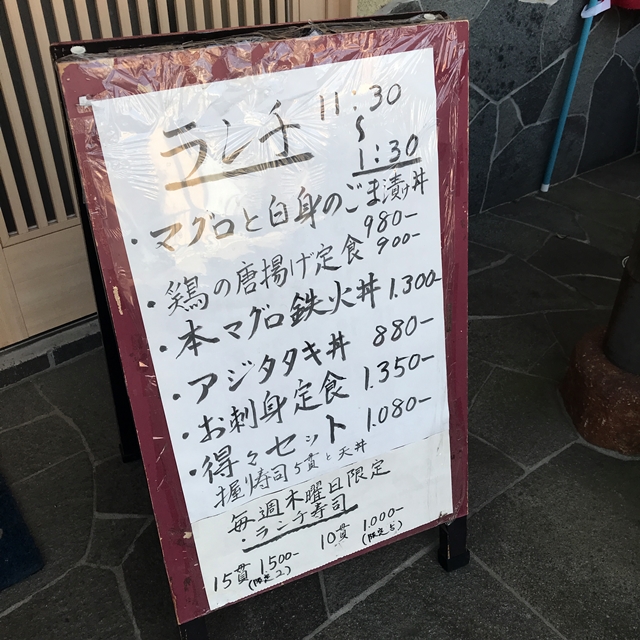 ランチ 11:30
〜
1:30
・マグロと白身のごま漬け丼
980-
・鶏の唐揚げ定食 900-
・本マグロ鉄火丼 1.300-
・アジタタキ丼 880-
・お刺身定食 1.350-
・得々セット 1.080-
握り寿司5貫と天丼
毎週木曜日限定
・ランチ寿司
15貫 1500- 10貫 1.000-
(限定2) (限定5)